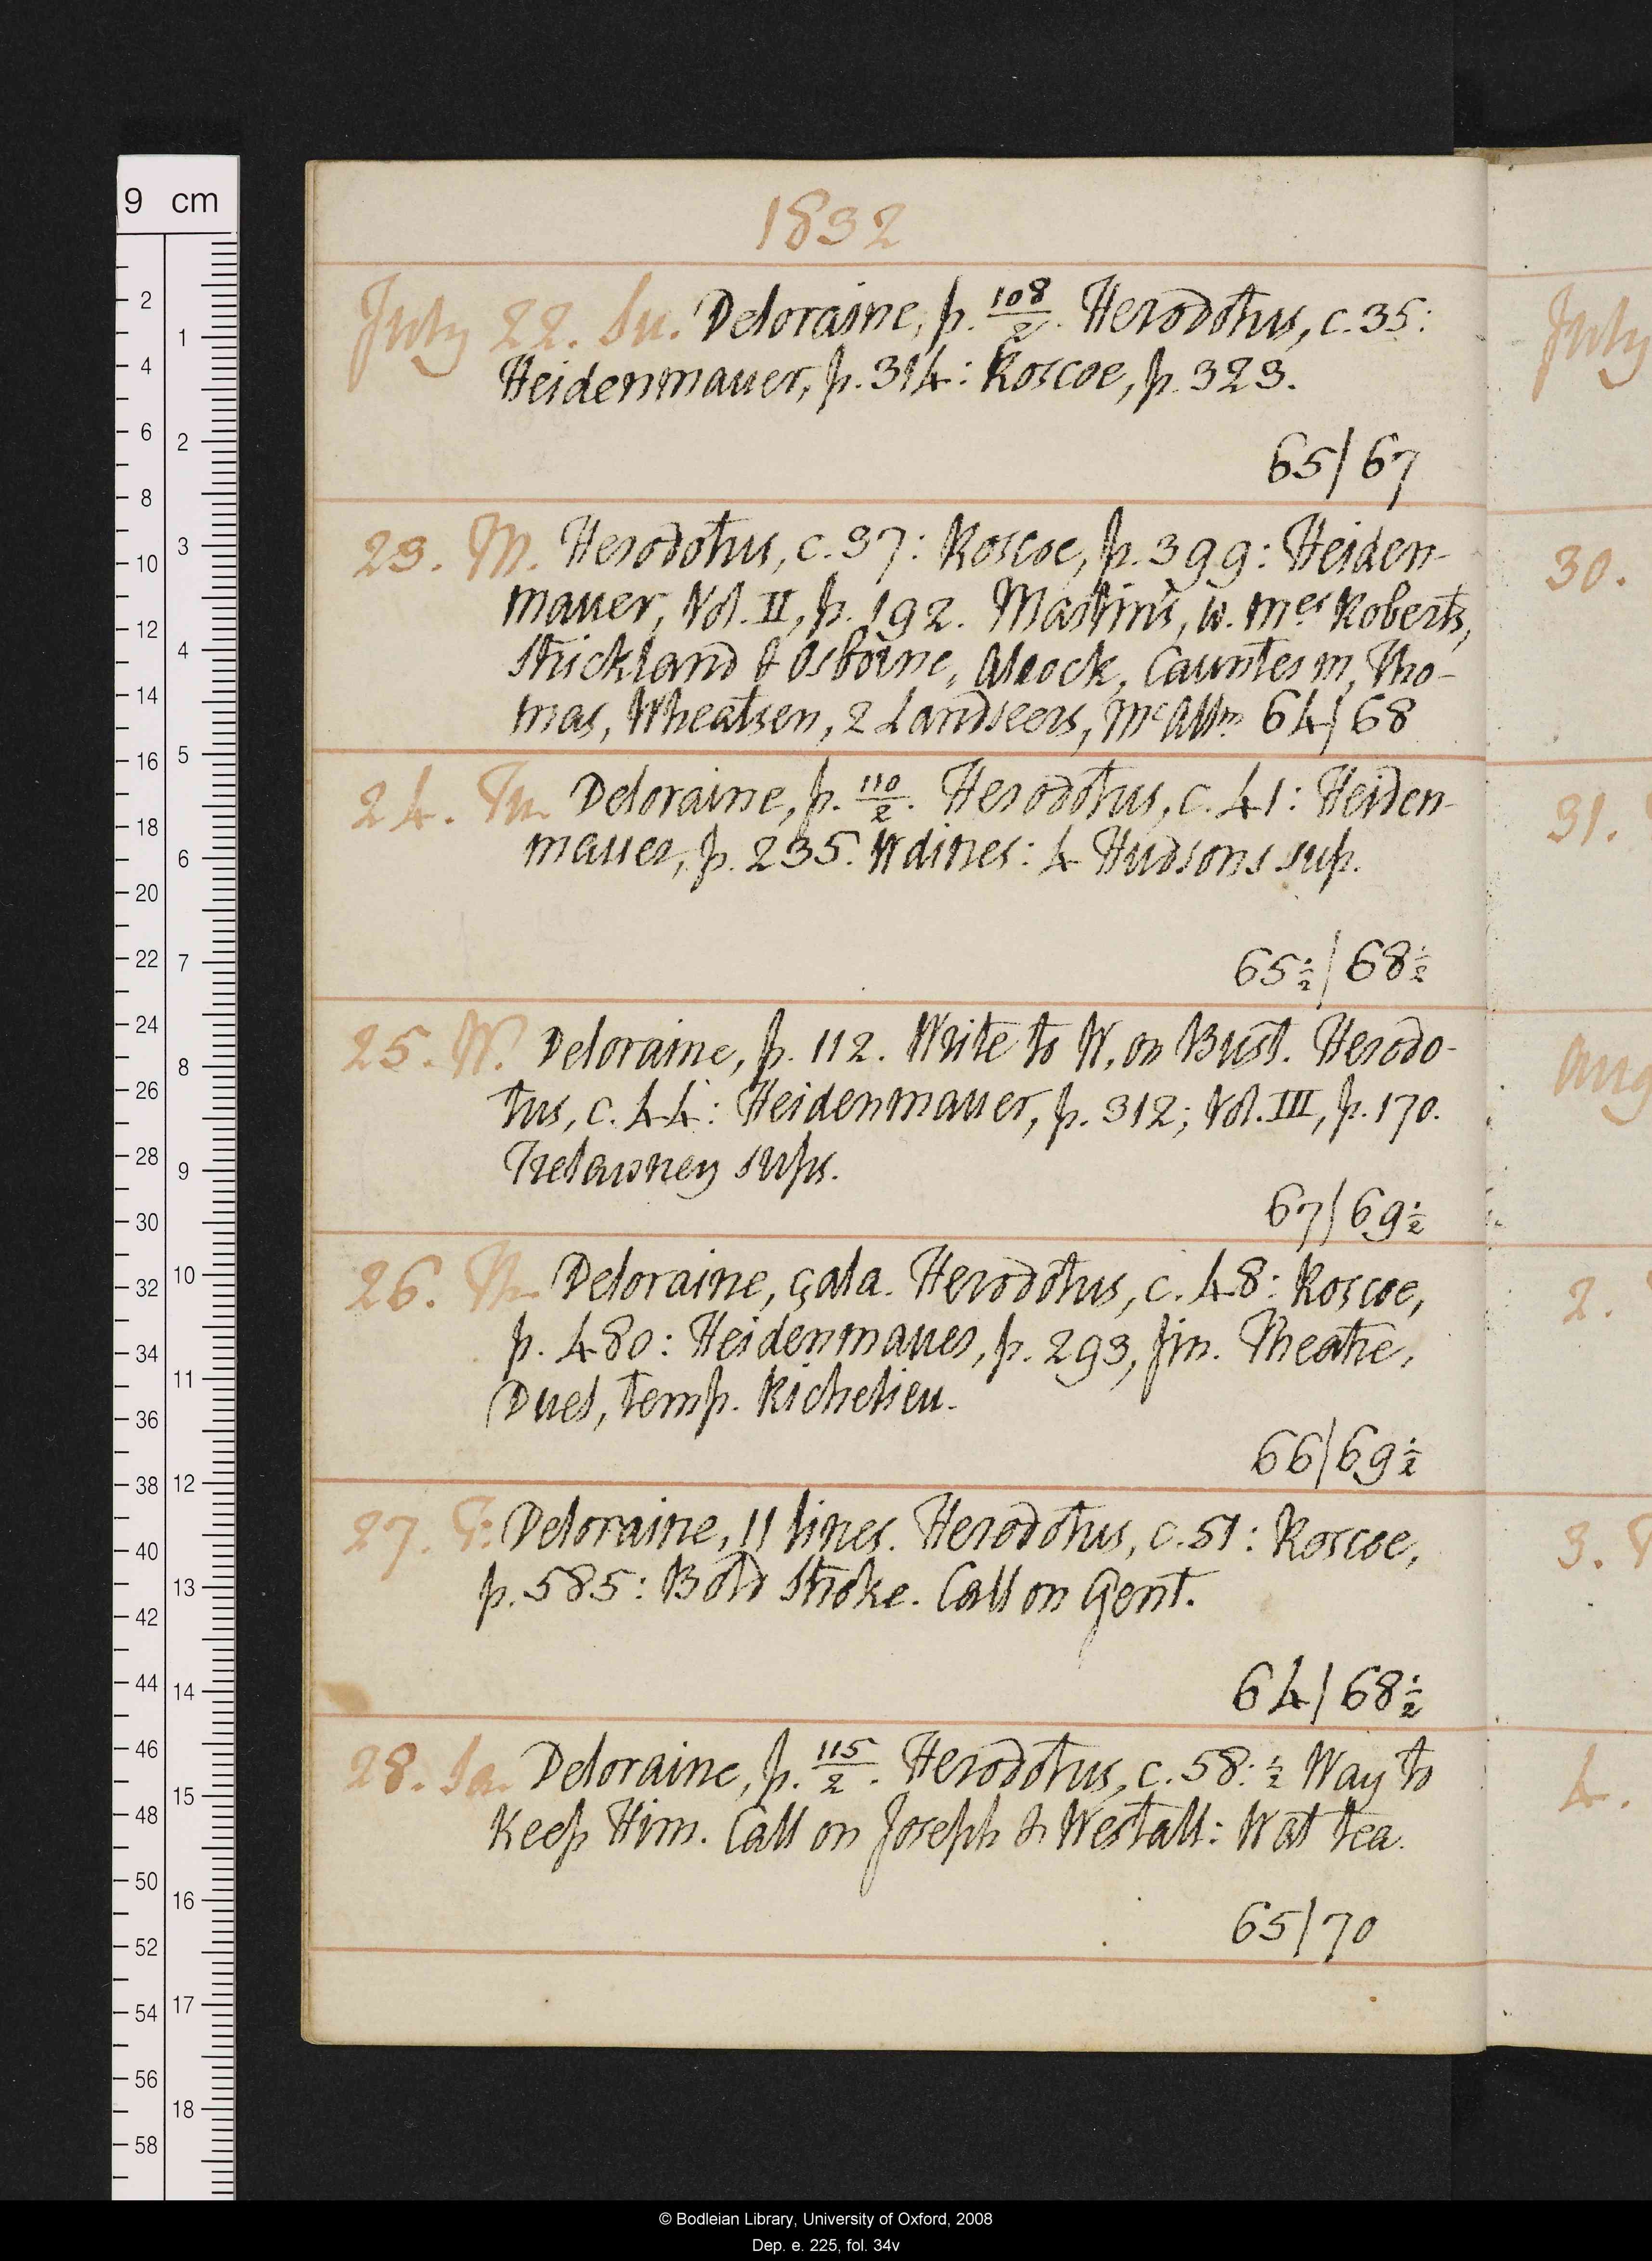 1832
July 22. Su. Deloraine, p. 108/2. Herodotus, c. 35:
Heidenmauer, p. 314: Roscoe, p. 323.
65/67
23. M. Herodotus, c. 37: Roscoe, p. 399: Heiden-
mauer, Vol. II, p. 192. Martin's, w. mes Roberts,
Strickland & Osborne, Alcock, Caunter m, Tho-
mas, Wheatsen, 2 Landseers, McAllm 64/68
24. Tu. Deloraine, p. 110/2. Herodotus, c. 41: Heiden-
mauer, p. 235. W dines: 4 Hudsons sup.
65½/68½
25. W. Deloraine, p. 112. Write to W, on Bust. Herodo-
tus, c. 44: Heidenmauer, p. 312; Vol. III, p. 170.
Trelawney sups.
67/69½
26. Th. Deloraine, çala. Herodotus, c. 48: Roscoe,
p. 480: Heidenmauer, p. 293, fin. Theatre,
Duel, temp. Richelieu.
66/69½
27. F. Deloraine, 11 lines. Herodotus, c. 51: Roscoe,
p. 585: Bold Stroke. Call on Gent.
64/68½
28. Sa. Deloraine, p. 115/2. Herodotus, c. 58: ½ Way to
Keep Him. Call on Joseph & Westall: W at tea.
65/70
July
30.
31.
Aug
2.
3.
4.
9 cm
2
4
6
8
10
12
14
16
18
20
22
24
26
28
30
32
34
36
38
40
42
44
46
48
50
52
54
56
58
1
2
3
4
5
6
7
8
9
10
11
12
13
14
15
16
17
18
© Bodleian Library, University of Oxford, 2008
Dep. e. 225, fol. 34v